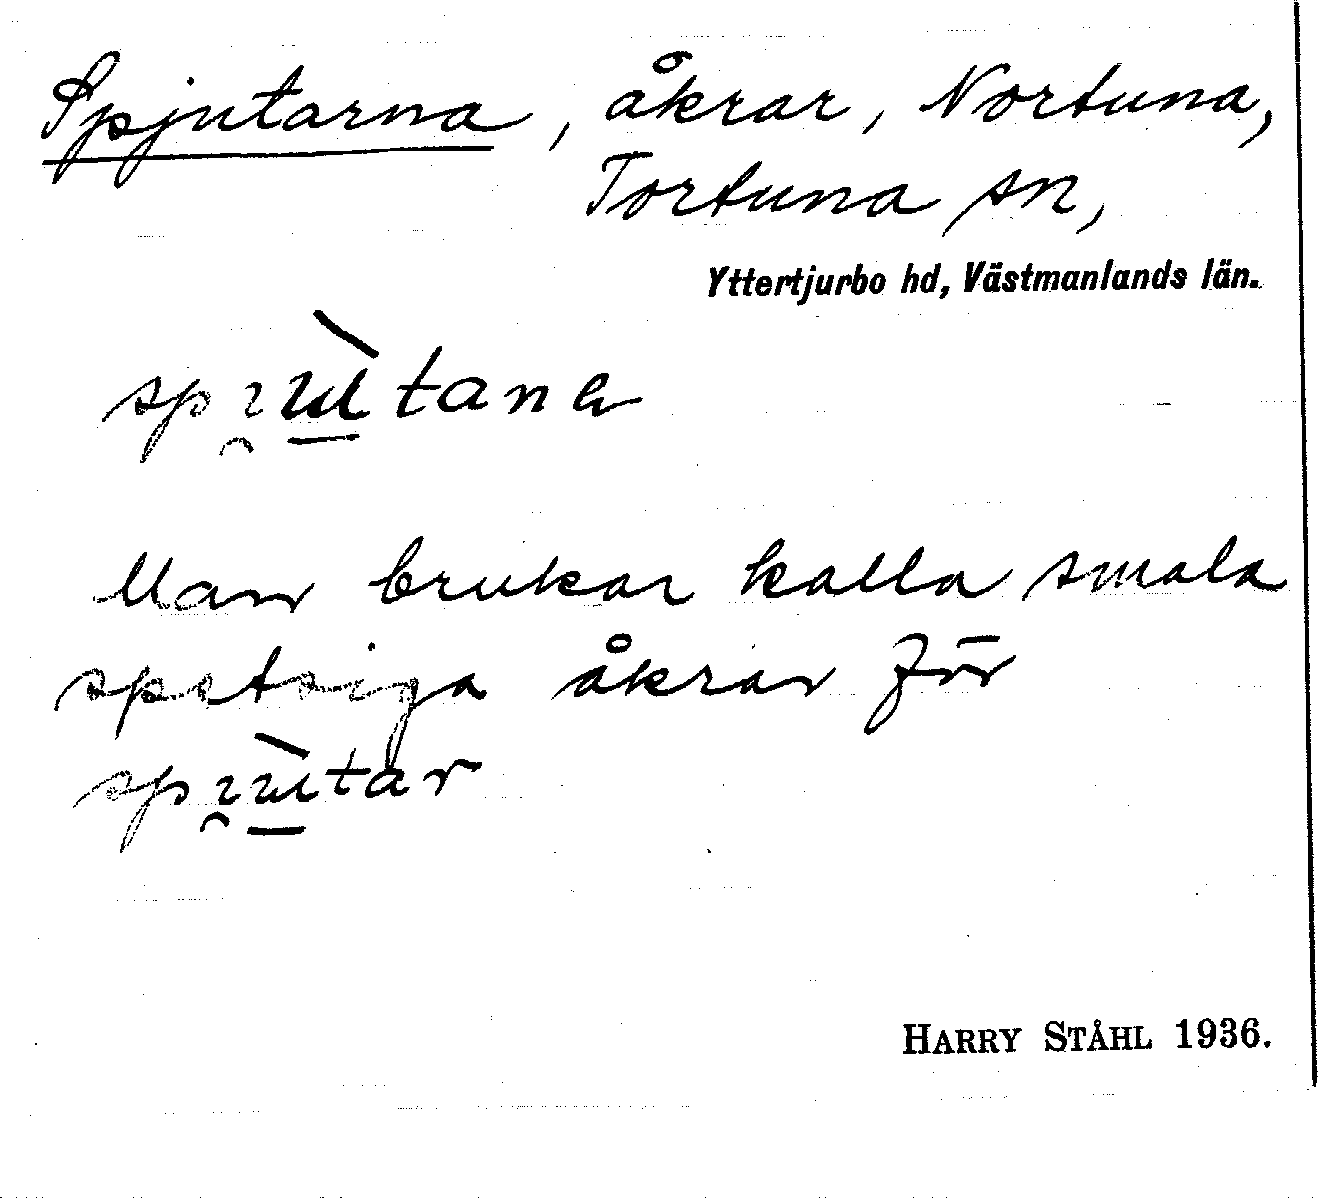 Spjutarna, åkrar, Nortuna,
Tortuna sn,
Yttertjurbo hd, Västmanlands län.
spı̯ɯ̠̀tana
Man brukar kalla smala
spetsiga åkrar för
spı̯ɯ̠̀tar
HARRY STÅHL 1936.